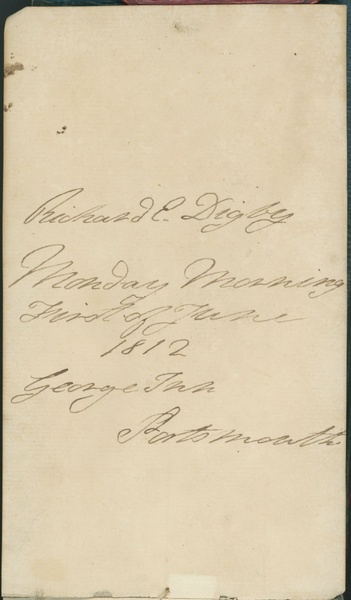 Richard E. Digby
Monday Morning
First of June
1812
George Inn
Portsmouth